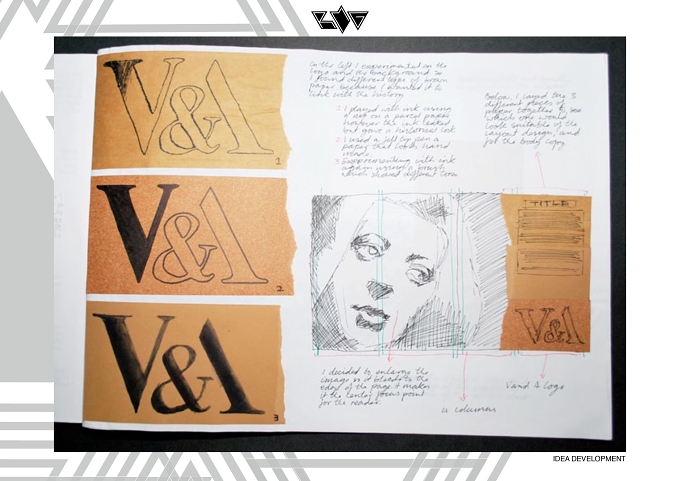 V&A
1
V&A
2
V&A
3
On the left I experimented on the
logo and the background so
I found different type of brown
paper because I wanted it to
link with the history
1. I played with ink using
it on a parcel paper
however the ink leaked
but gave a historical look
2. I used a gell tip pen a
paper that looks hand
made.
3. Experimenting with ink
again using a brush
which showed different tone
Below I layed the 3
different pieces of
paper together to see
which one would
look suitable of the
layout design, and
for the body copy
TITLE
V&A
I decided to enlarge the
image so it bleeds to the
edge of the page it makes
it the center focus point
for the reader.
columns
V and A Logo
IDEA DEVELOPMENT